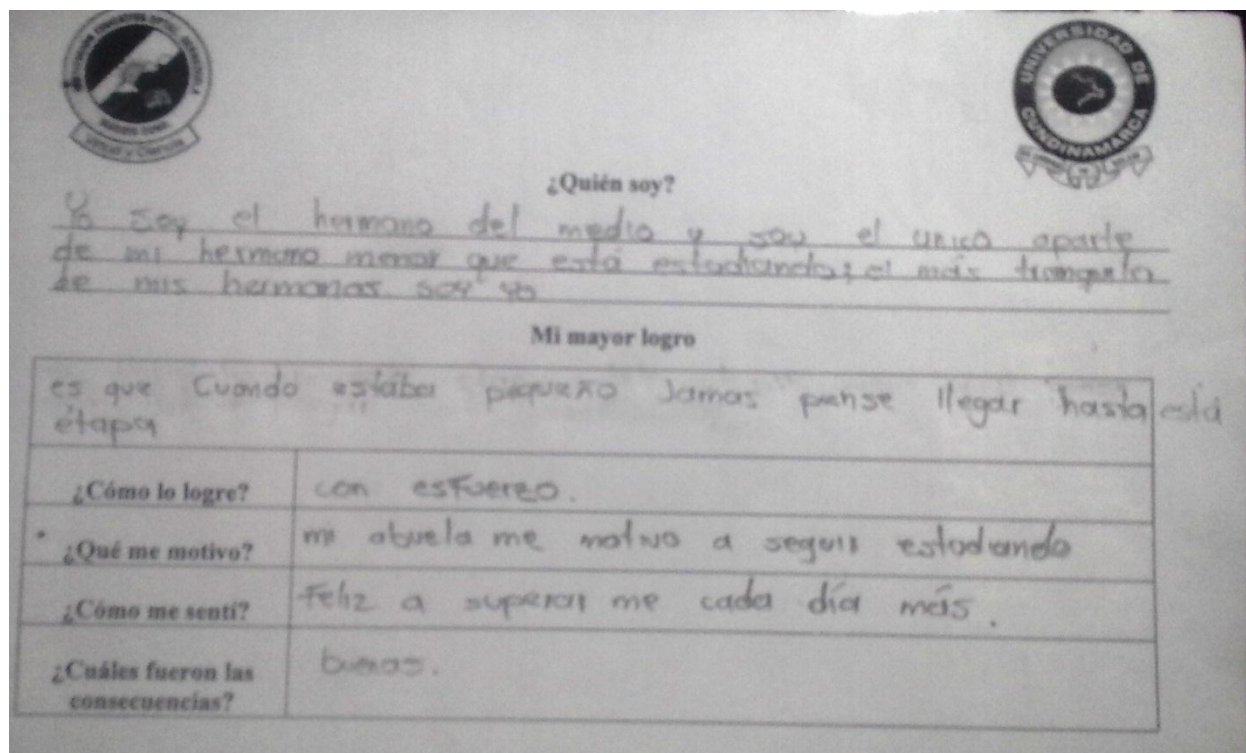 UNIVERSIDAD DE CUNDINAMARCA
¿Quién soy?
Yo soy el hermano del medio y soy el unico aparte
de mi hermano menor que está estudiando; el más tranquilo
de mis hermanos soy yo
Mi mayor logro
es que Cuando estaba pequeño Jamas pense llegar hasta está
étapa
¿Cómo lo logre? con esfuerzo.
¿Qué me motivo? mi abuela me motivo a seguir estudiando
¿Cómo me sentí? Feliz a superar me cada día más.
¿Cuáles fueron las buenas.
consecuencias?